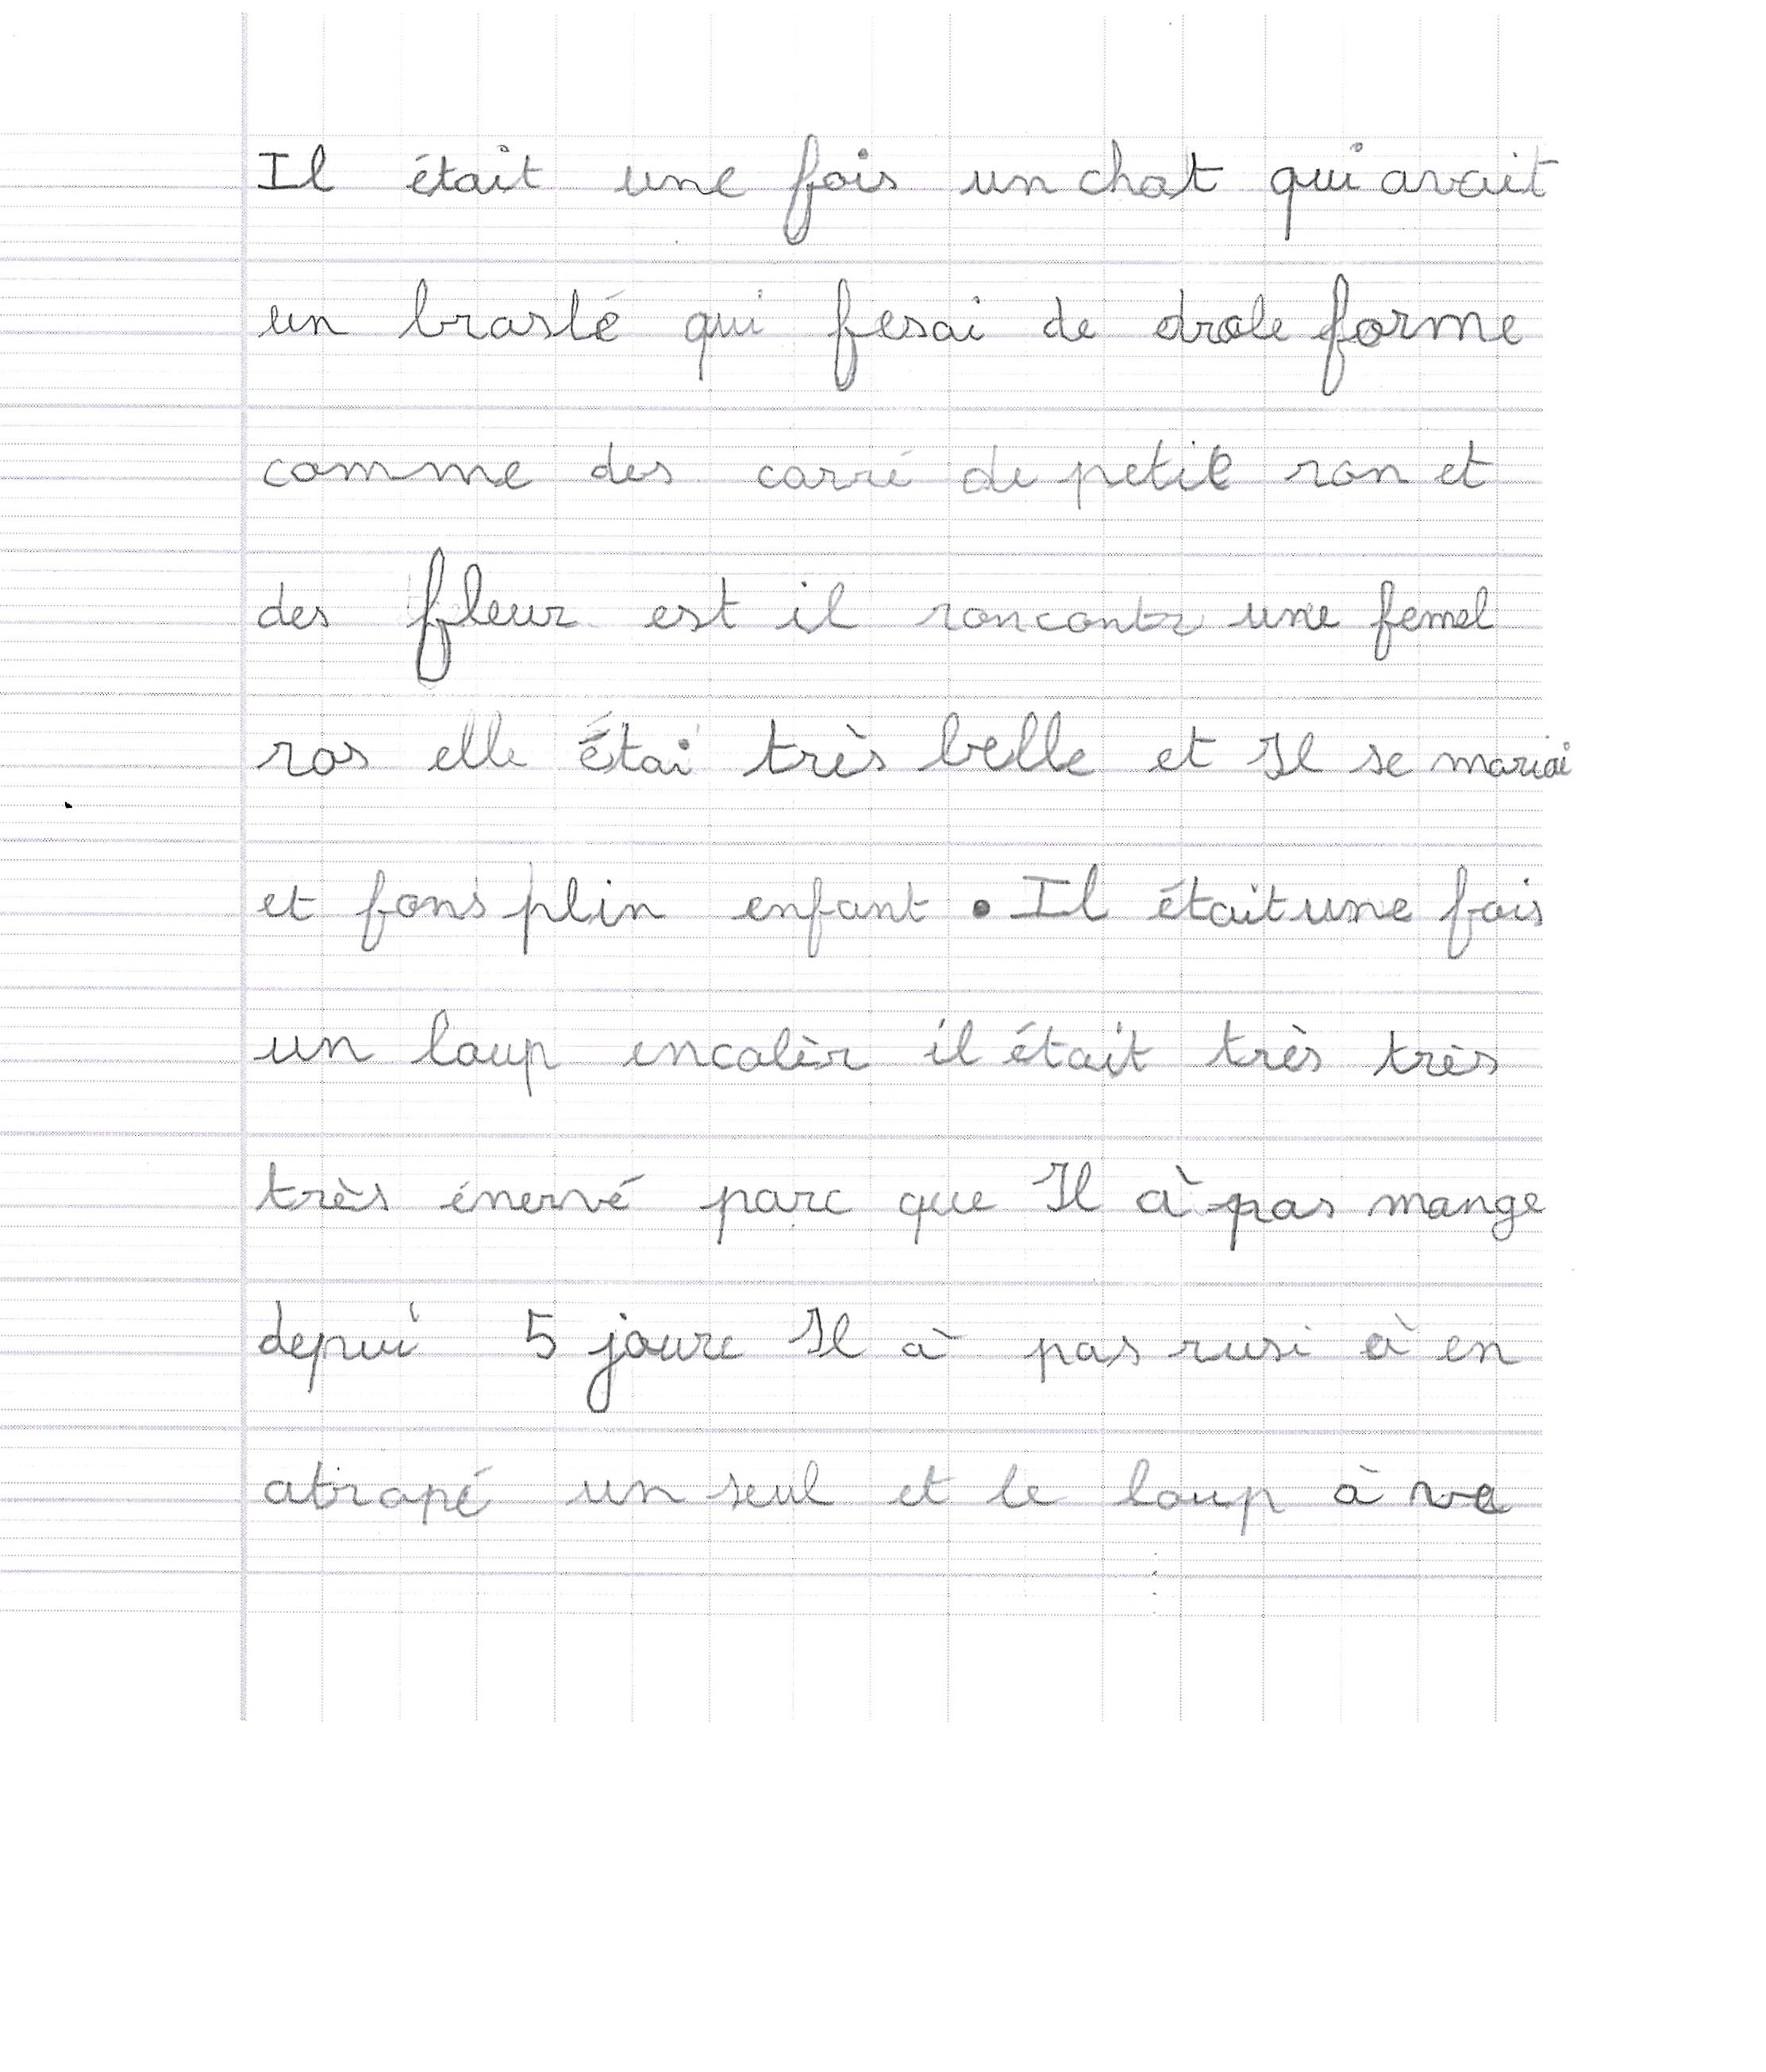 Il était une fois un chat qui avait
un braslé qui fesai de drole forme
comme des carré de petit ron et
des fleur est il roncontr une femel
ros elle étai très belle et Il se mariai
et fons plin enfant . Il était une fois
un loup encolèr il était très très
très énervé parc que Il à pas mange
depui 5 joure Il à pas rusi à en
atrapé un seul et le loup à va